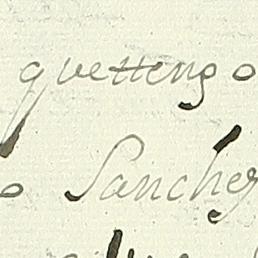 que tteng o
o Sanchez